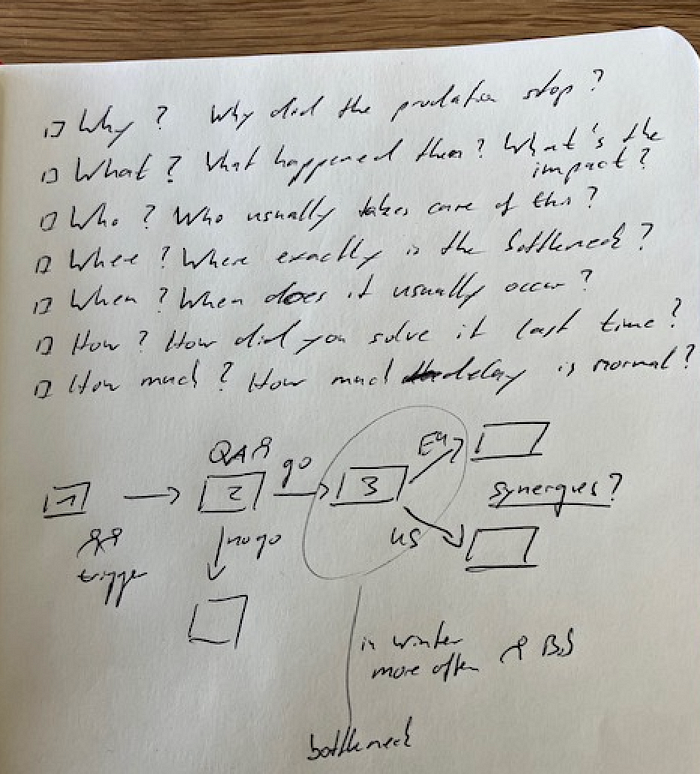 Why? Why did the production stop?
What? What happened then? What's the
impact?
Who? Who usually takes care of this?
Where? Where exactly is the bottleneck?
When? When does it usually occur?
How? How did you solve it last time?
How much? How much delay is normal?
QA go EU
1 2 3
synergies?
nogo US
trigger
in winter
more often
bottleneck